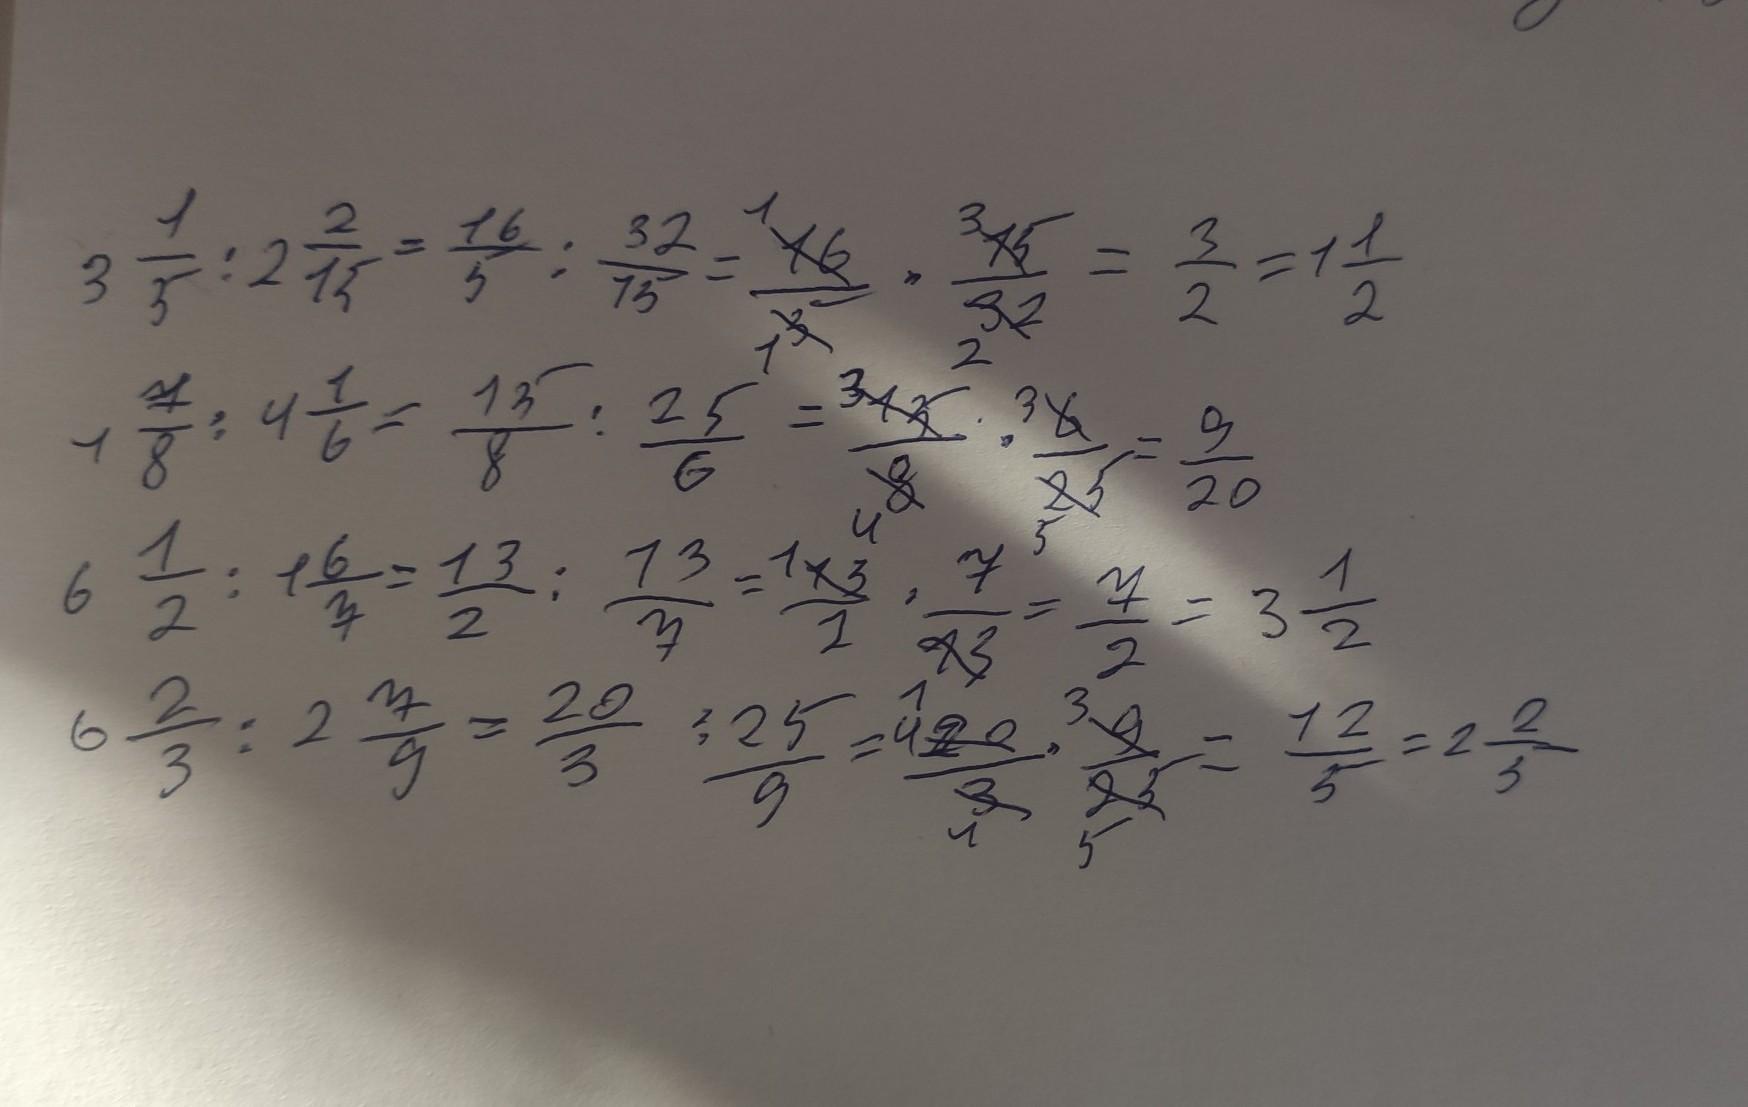 3 1/5 : 2 2/15 = 16/5 : 32/15 = 16/5 · 15/32 = 3/2 = 1 1/2
1 7/8 : 4 1/6 = 15/8 : 25/6 = 15/8 · 6/25 = 9/20
6 1/2 : 1 6/7 = 13/2 : 13/7 = 13/2 · 7/13 = 7/2 = 3 1/2
6 2/3 : 2 7/9 = 20/3 : 25/9 = 20/3 · 9/25 = 12/5 = 2 2/5